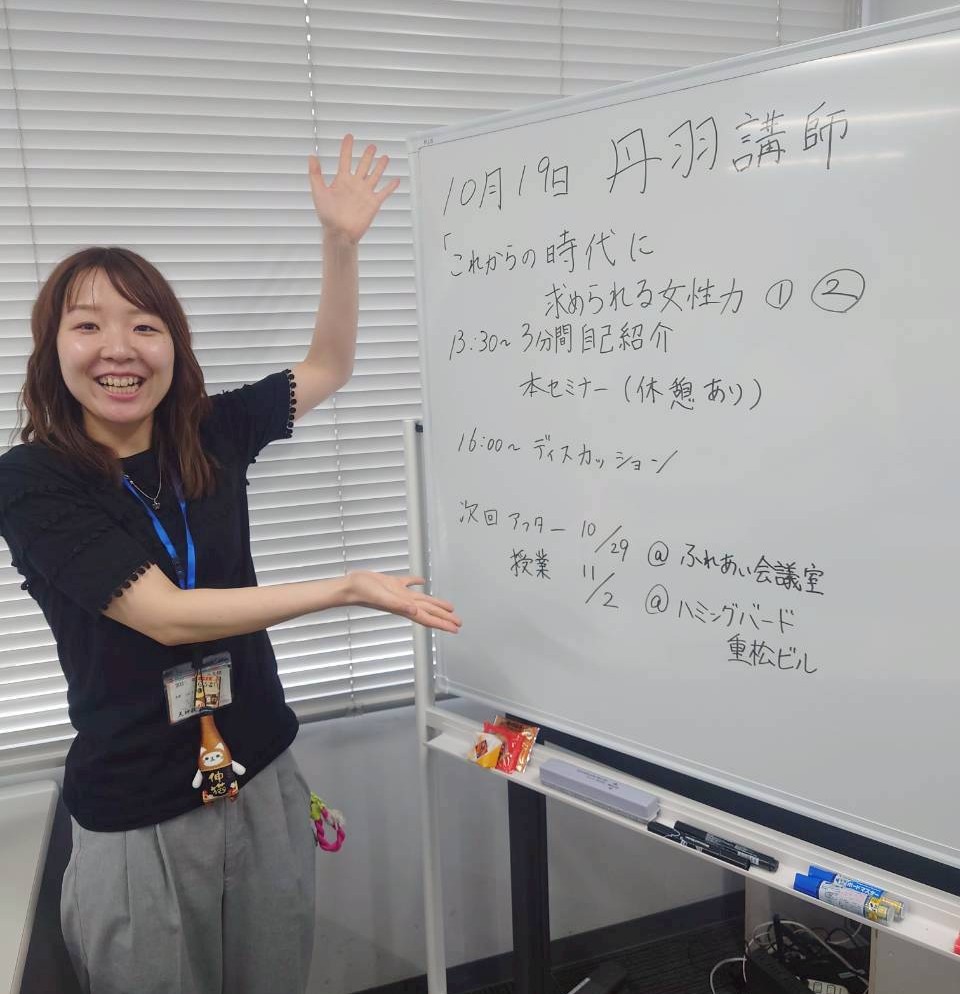 10月19日 丹羽講師
「これからの時代に
求められる女性力 ① ②
13:30～ 3分間自己紹介
本セミナー(休憩あり)
16:00～ ディスカッション
次回 アフター 10/29 @ ふれあい会議室
授業 11/2 @ ハミングバード
重松ビル
ボードマスター